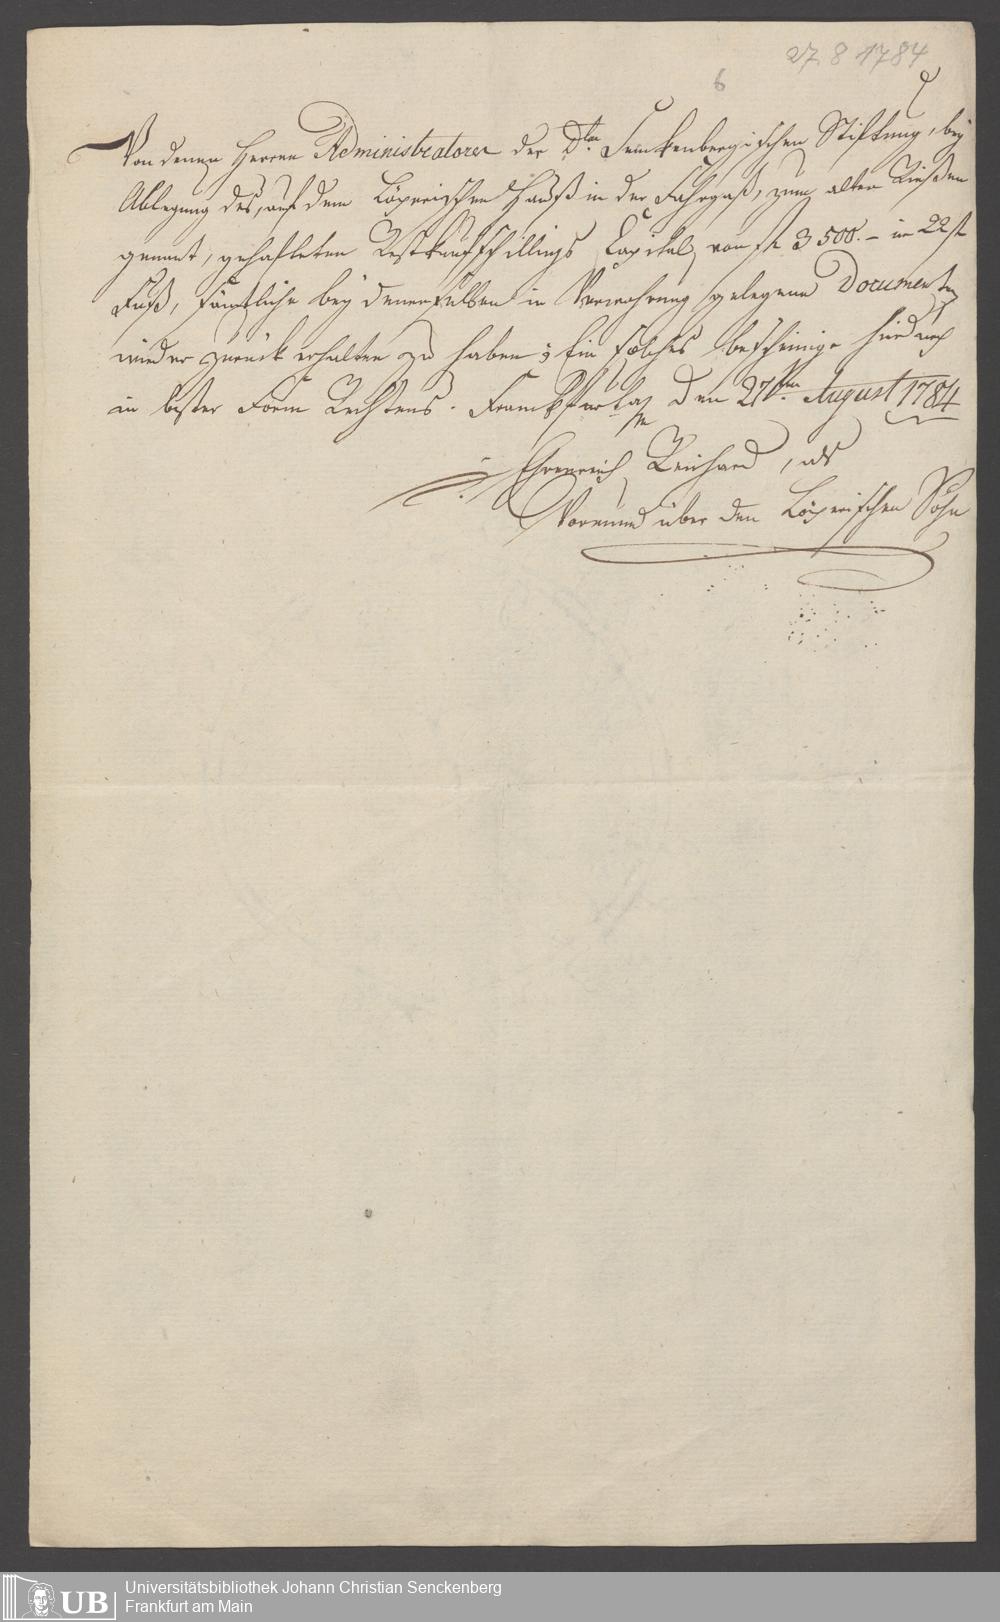 27. 8 1784
6
Von denen Herren Administratoren der Dr. Senckenbergischen Stiftung, bey
Ablegung des, auf dem Löperischen Hauß in der Fahrgaß, zum alten Rießen
genant, gehafteten Restkaufschillings Capital von fl 3500.– in 22 fl
Fuß, sämtliche bey denenselben in Verwahrung gelegene Documenten
wieder zurück erhalten zu haben; Ein solches bescheinige hierdurch
in bester Form Rechtens. Franckfurt den 27ten August 1784
Ehrenreich Reinhard, als
Vormund über den Löperischen Sohn
Universitätsbibliothek Johann Christian Senckenberg
Frankfurt am Main
UB